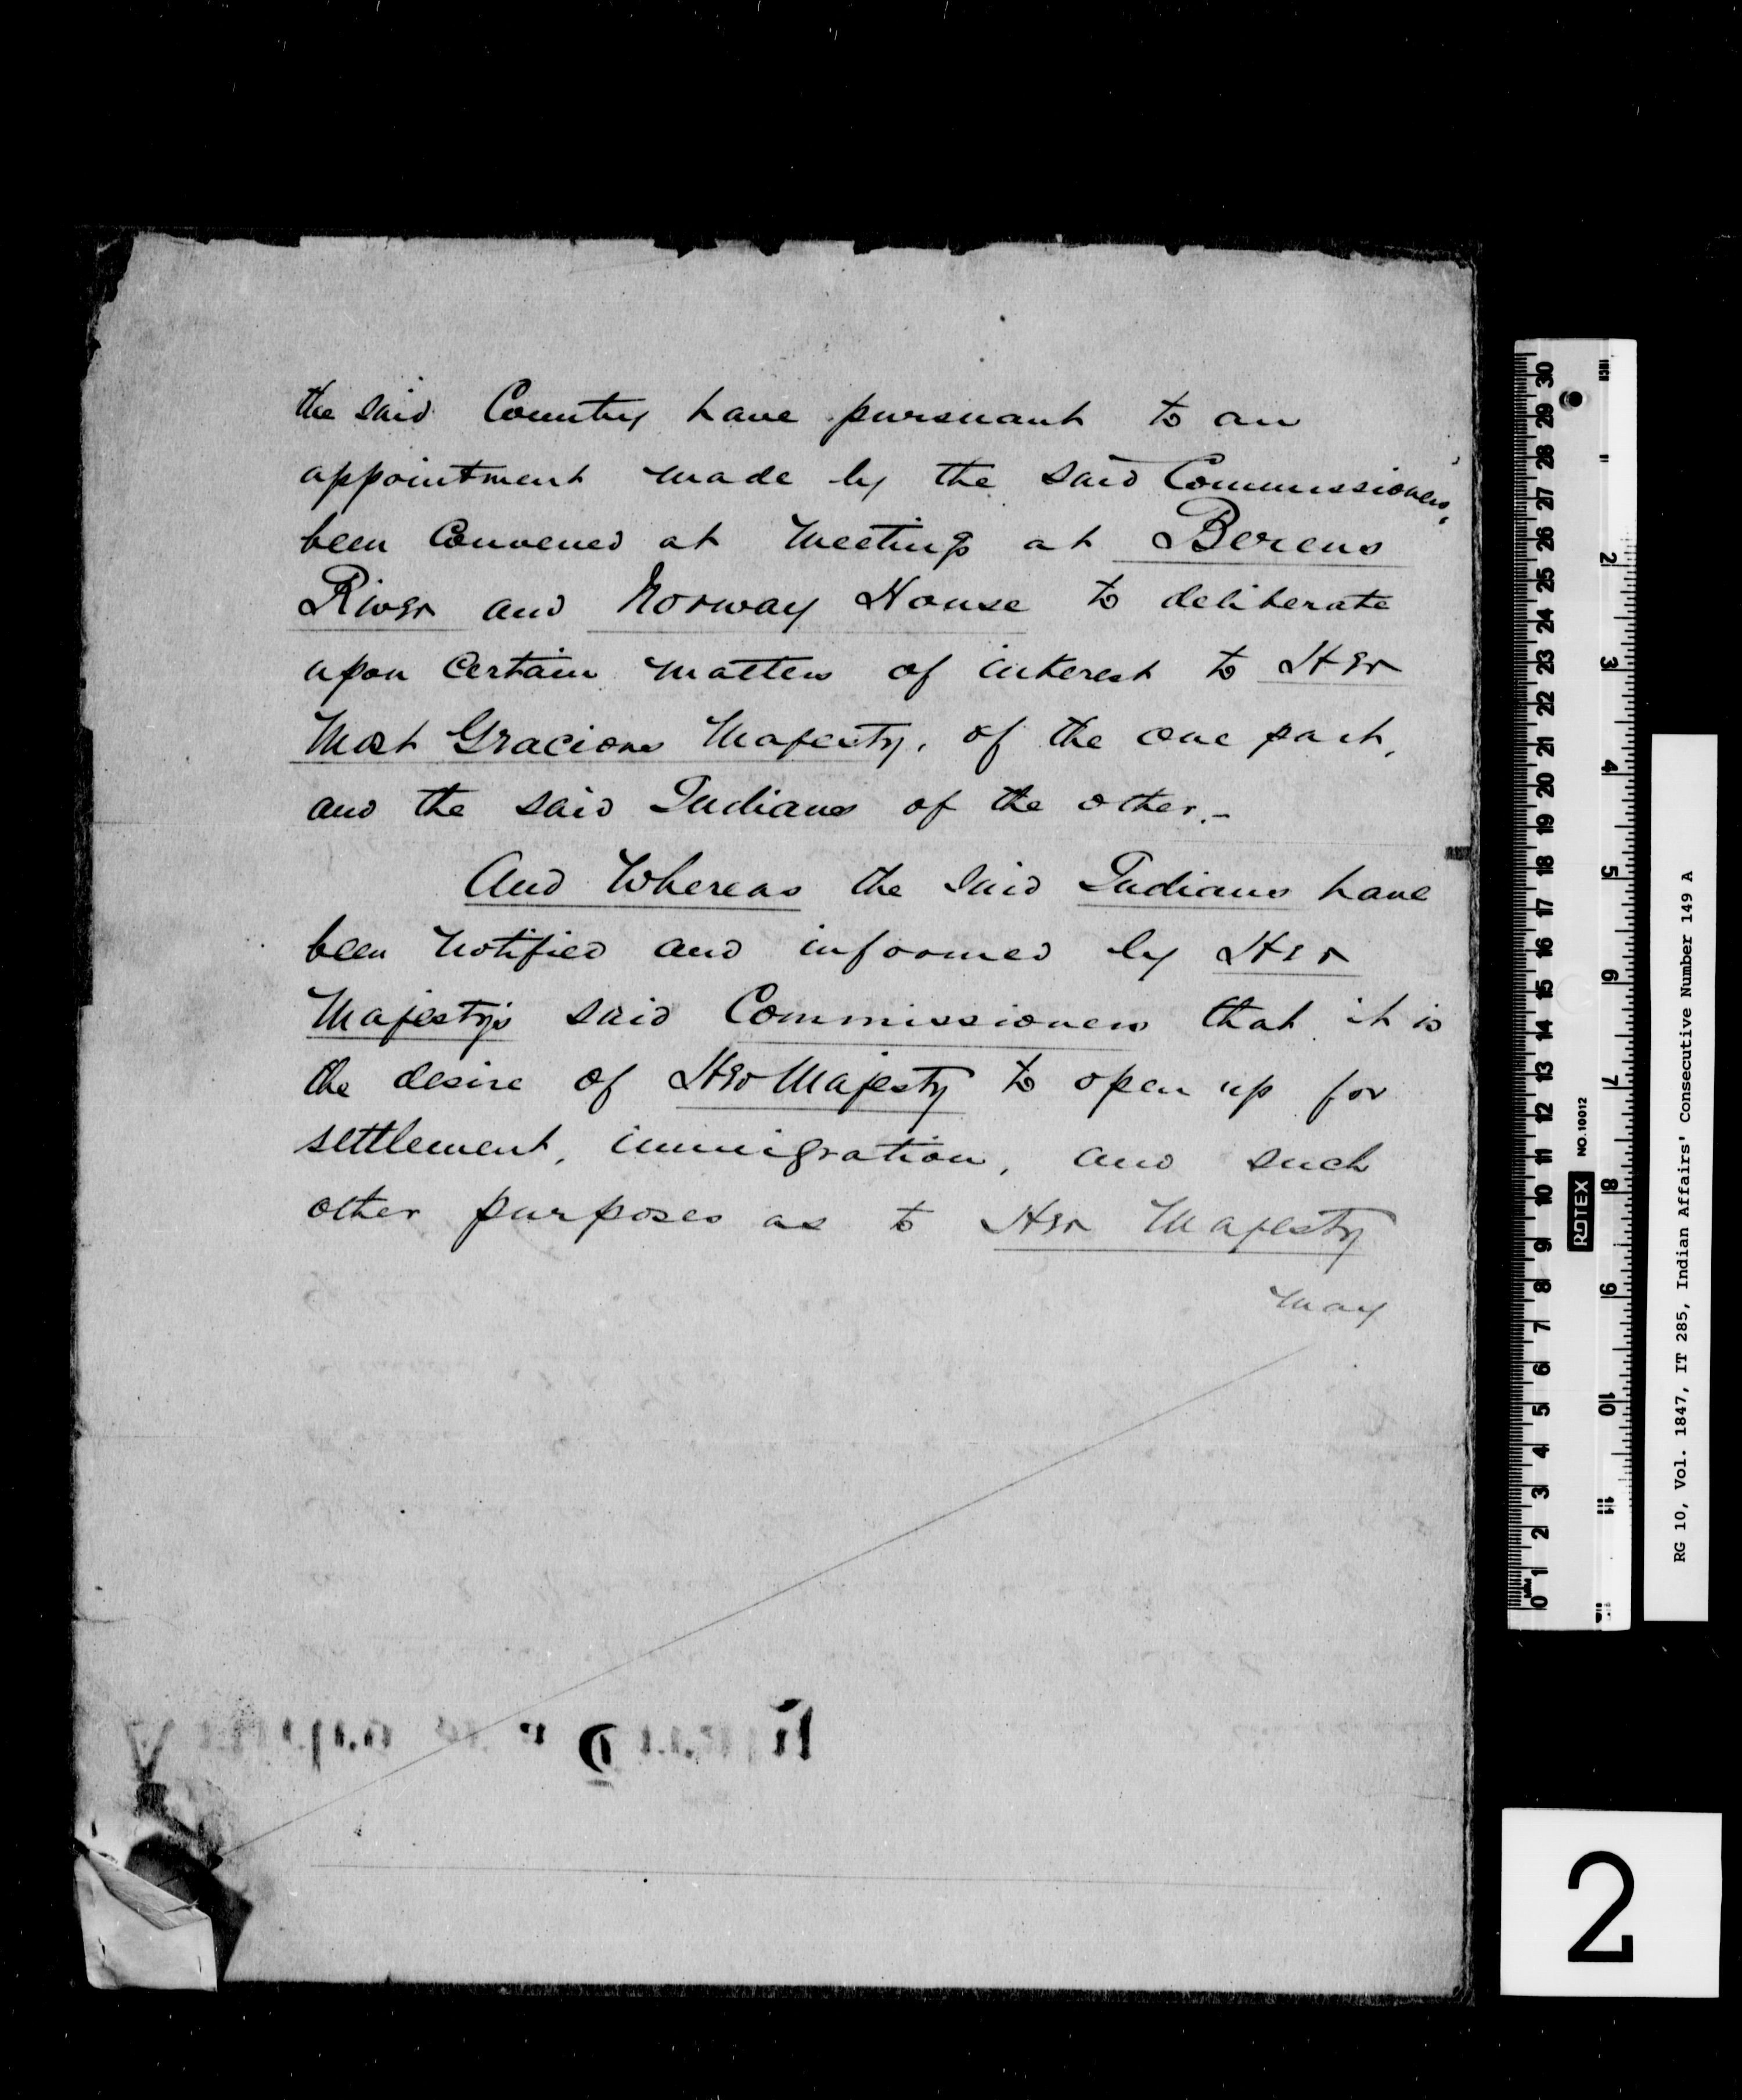 the said Country have pursuant to an
appointment made by the said Commissioners,
been Convened at Meetings at Berens
River and Norway House to deliberate
upon certain matters of interest to Her
Most Gracious Majesty, of the one part,
and the said Indians of the other.–
And Whereas the said Indians have
been notified and informed by Her
Majesty's said Commissioners that it is
the desire of Her Majesty to open up for
settlement, immigration, and such
other purposes as to Her Majesty
may
30 29 28 27 26 25 24 23 22 21 20 19 18 17 16 15 14 13 12 11 10 9 8 7 6 5 4 3 2 1 0
1 2 3 4 5 6 7 8 9 10 11
ROTEX NO. 10012
RG 10, Vol. 1847, IT 285, Indian Affairs' Consecutive Number 149 A
2